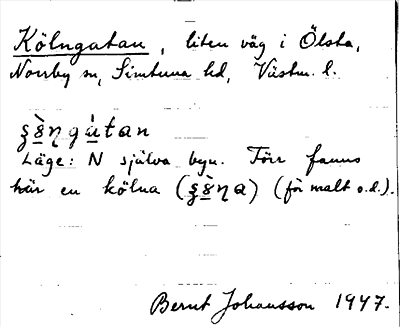 Kölngatan, liten väg i Ölsta,
Norrby sn, Simtuna hd, Västm. l.
ȿö̀ŋgátan
Läge: N själva byn. Förr fanns
här en kölna (ȿö̀ŋa) (för malt o.d.).
Bernt Johansson 1947.